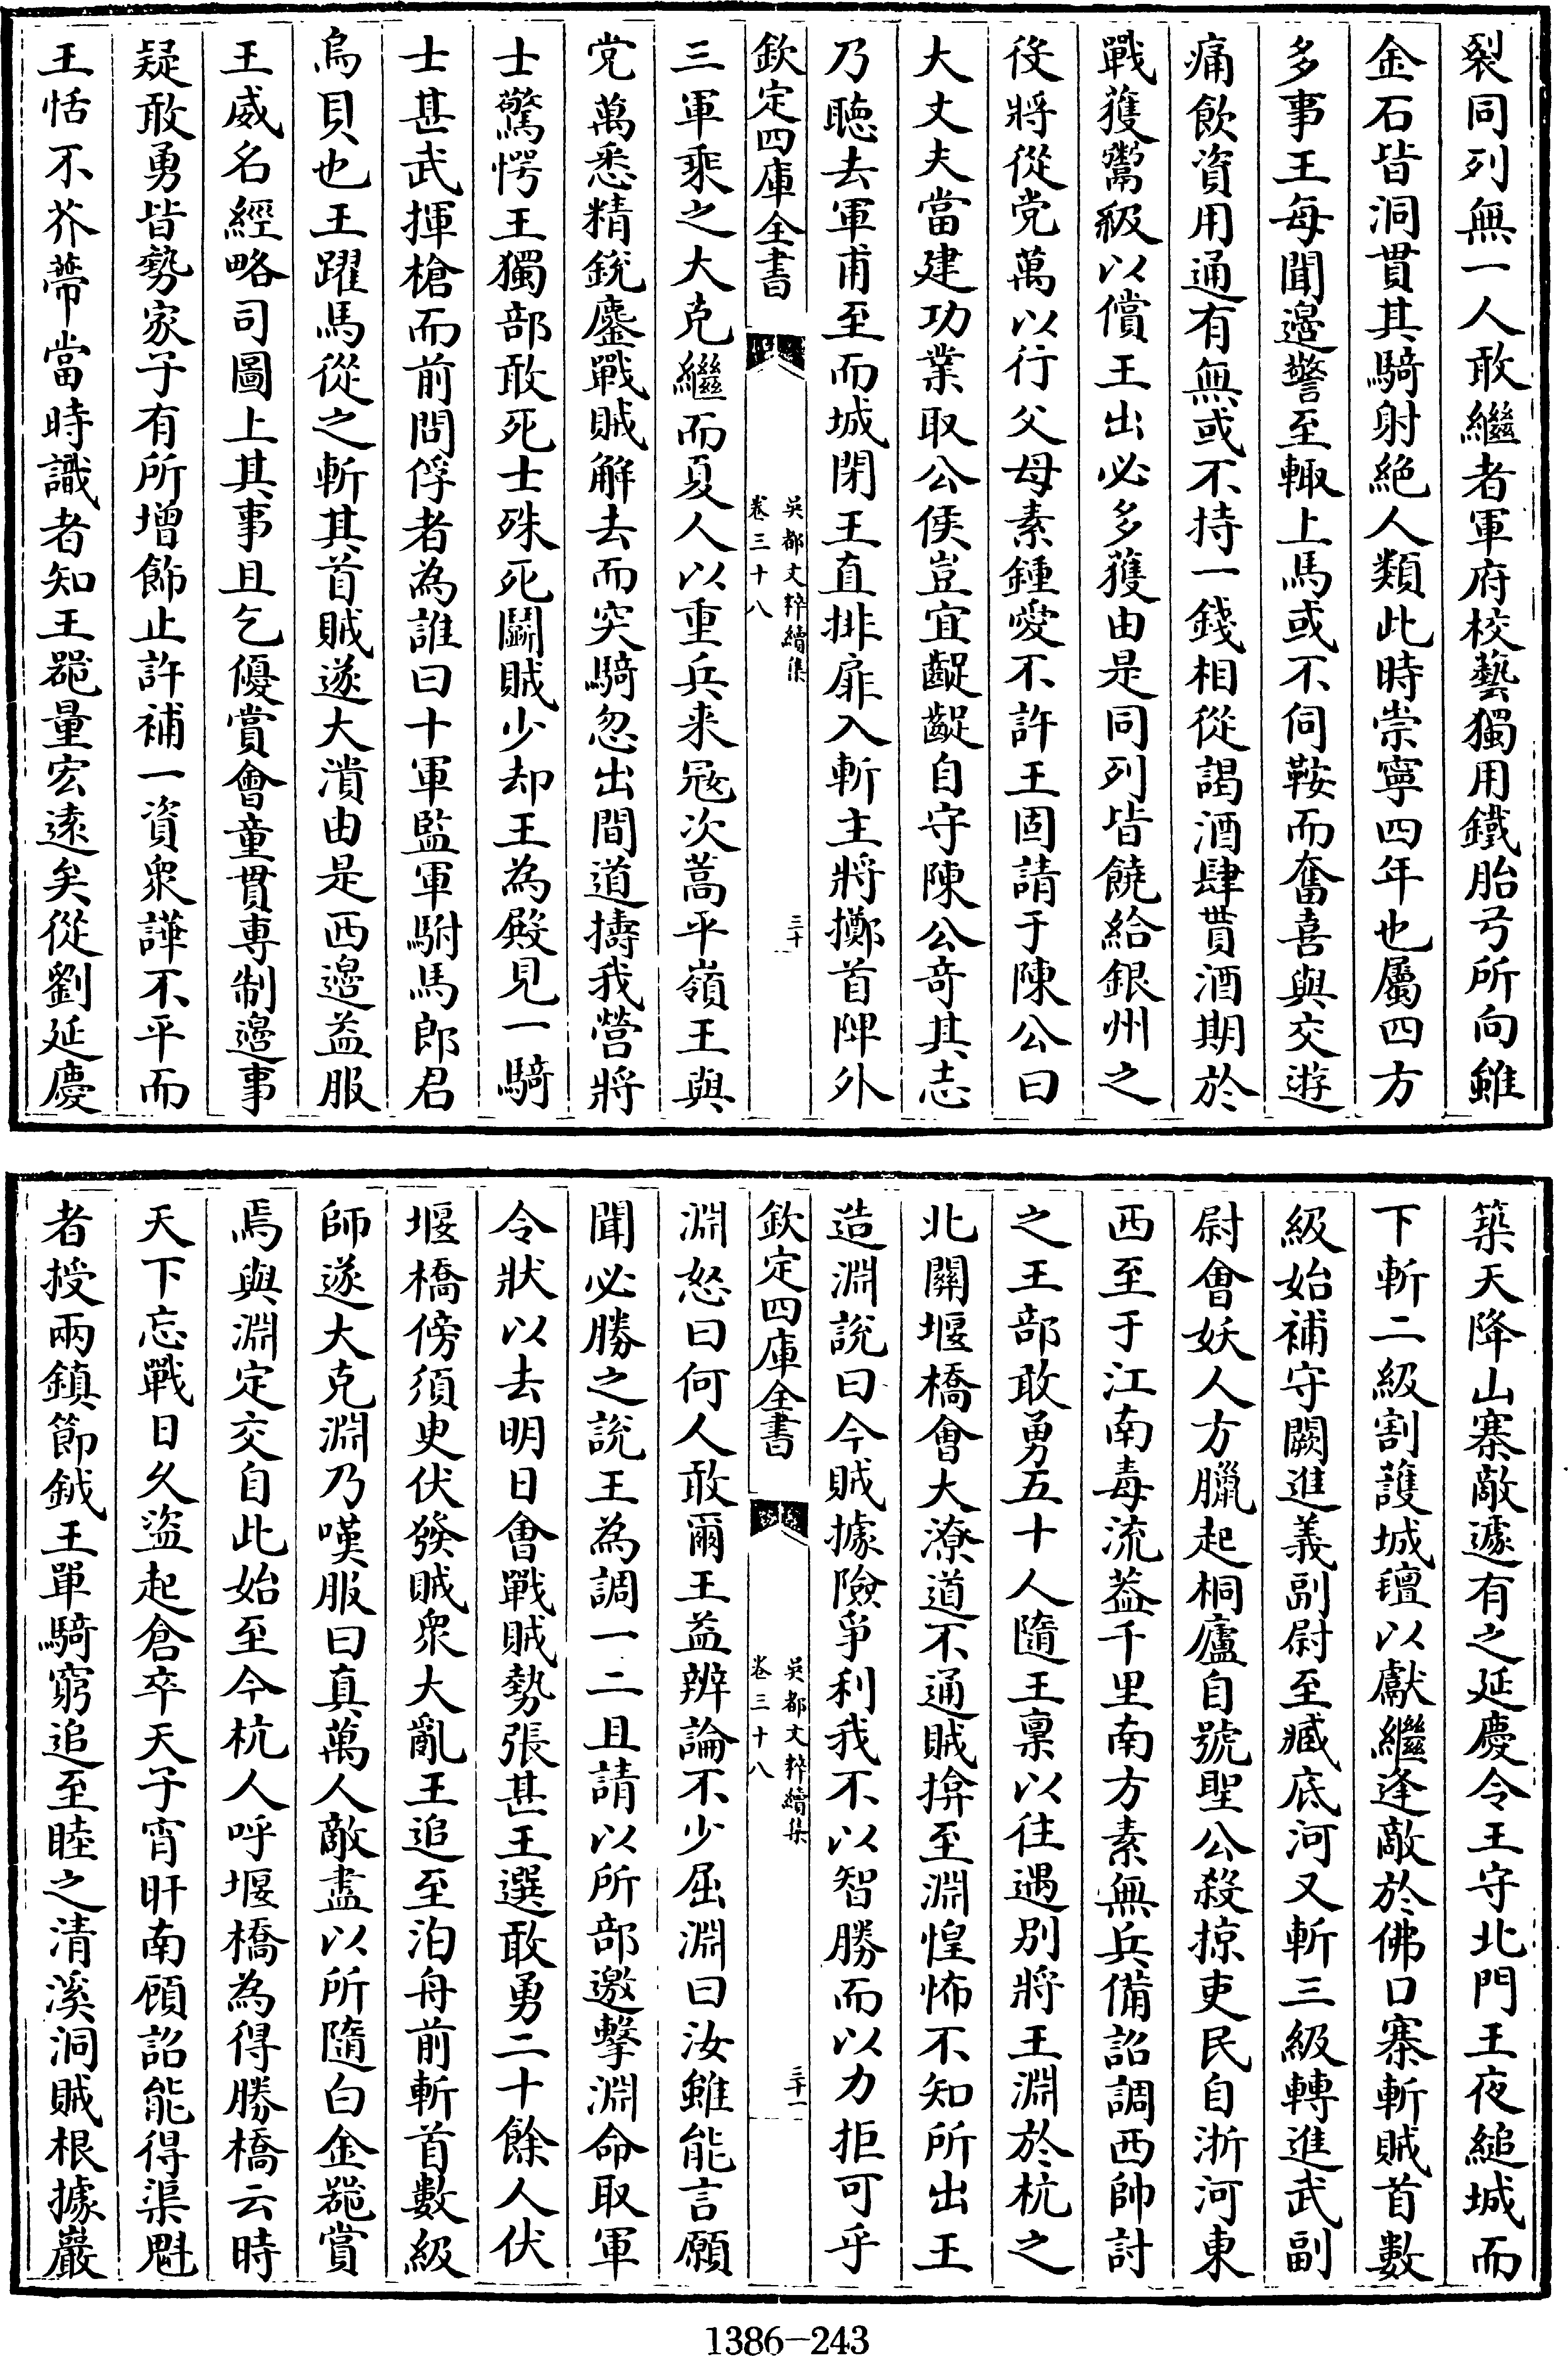 裂同列無一人敢繼者軍府校藝獨用鐵胎弓所向雖
金石皆洞貫其騎射絶人類此時崇寧四年也屬四方
多事王每聞邉警至輙上馬或不伺鞍而奮喜與交遊
痛飲資用通有無或不持一錢相從謁酒肆貰酒期於
戰獲鬻級以償王出必多獲由是同列皆饒給銀州之
役將從党萬以行父母素鍾愛不許王固請于陳公曰
大丈夫當建功業取公侯豈宜齪齪自守陳公竒其志
乃聴去軍甫至而城閉王直排扉入斬主將擲首陴外
欽定四庫全書
吳都文粹續集
卷三十八
三十
三軍乘之大克繼而夏人以重兵来冦次蒿平嶺王與
党萬悉精銳鏖戰賊解去而突騎忽出間道擣我營將
士驚愕王獨部敢死士殊死鬬賊少却王為殿見一騎
士甚武揮槍而前問俘者為誰曰十軍監軍駙馬郎君
烏貝也王躍馬從之斬其首賊遂大潰由是西邉益服
王威名經略司圖上其事且乞優賞會童貫專制邉事
疑敢勇皆勢家子有所增飾止許補一資衆譁不平而
王恬不芥蔕當時識者知王噐量宏逺矣從劉延慶
築天降山寨敵遽有之延慶令王守北門王夜縋城而
下斬二級割護城氊以獻繼逢敵於佛口寨斬賊首數
級始補守闕進義副尉至臧底河又斬三級轉進武副
尉會妖人方臘起桐廬自號聖公殺掠吏民自浙河東
西至于江南毒流葢千里南方素無兵備詔調西帥討
之王部敢勇五十人隨王禀以往遇别將王淵於杭之
北關堰橋會大潦道不通賊揜至淵惶怖不知所出王
造淵說曰今賊據險爭利我不以智勝而以力拒可乎
欽定四庫全書
吳都文粹續集
卷三十八
三十一
淵怒曰何人敢爾王益辨論不少屈淵曰汝雖能言願
聞必勝之說王為調一二且請以所部邀擊淵命取軍
令狀以去明日會戰賊勢張甚王選敢勇二十餘人伏
堰橋傍須臾伏發賊衆大亂王追至泊舟前斬首數級
師遂大克淵乃嘆服曰真萬人敵盡以所隨白金噐賞
焉與淵定交自此始至今杭人呼堰橋為得勝橋云時
天下忘戰日久盜起倉卒天子宵旰南顧詔能得渠魁
者授兩鎮節鉞王單騎窮追至睦之清溪洞賊根據巖
1386-243